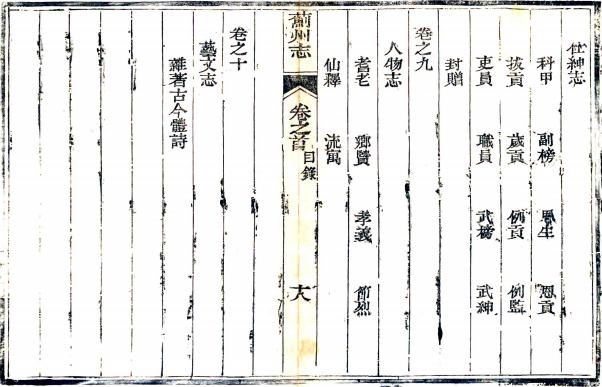 仕紳志
科甲 副榜 恩生 恩貢
拔貢 歲貢 例貢 例監
吏員 職員 武榜 武紳
封贈
卷之九
人物志
耆老 鄉賢 孝義 節烈
仙釋 流寓
薊州志 卷之首 目錄 十八
卷之十
藝文志
雜著古今體詩